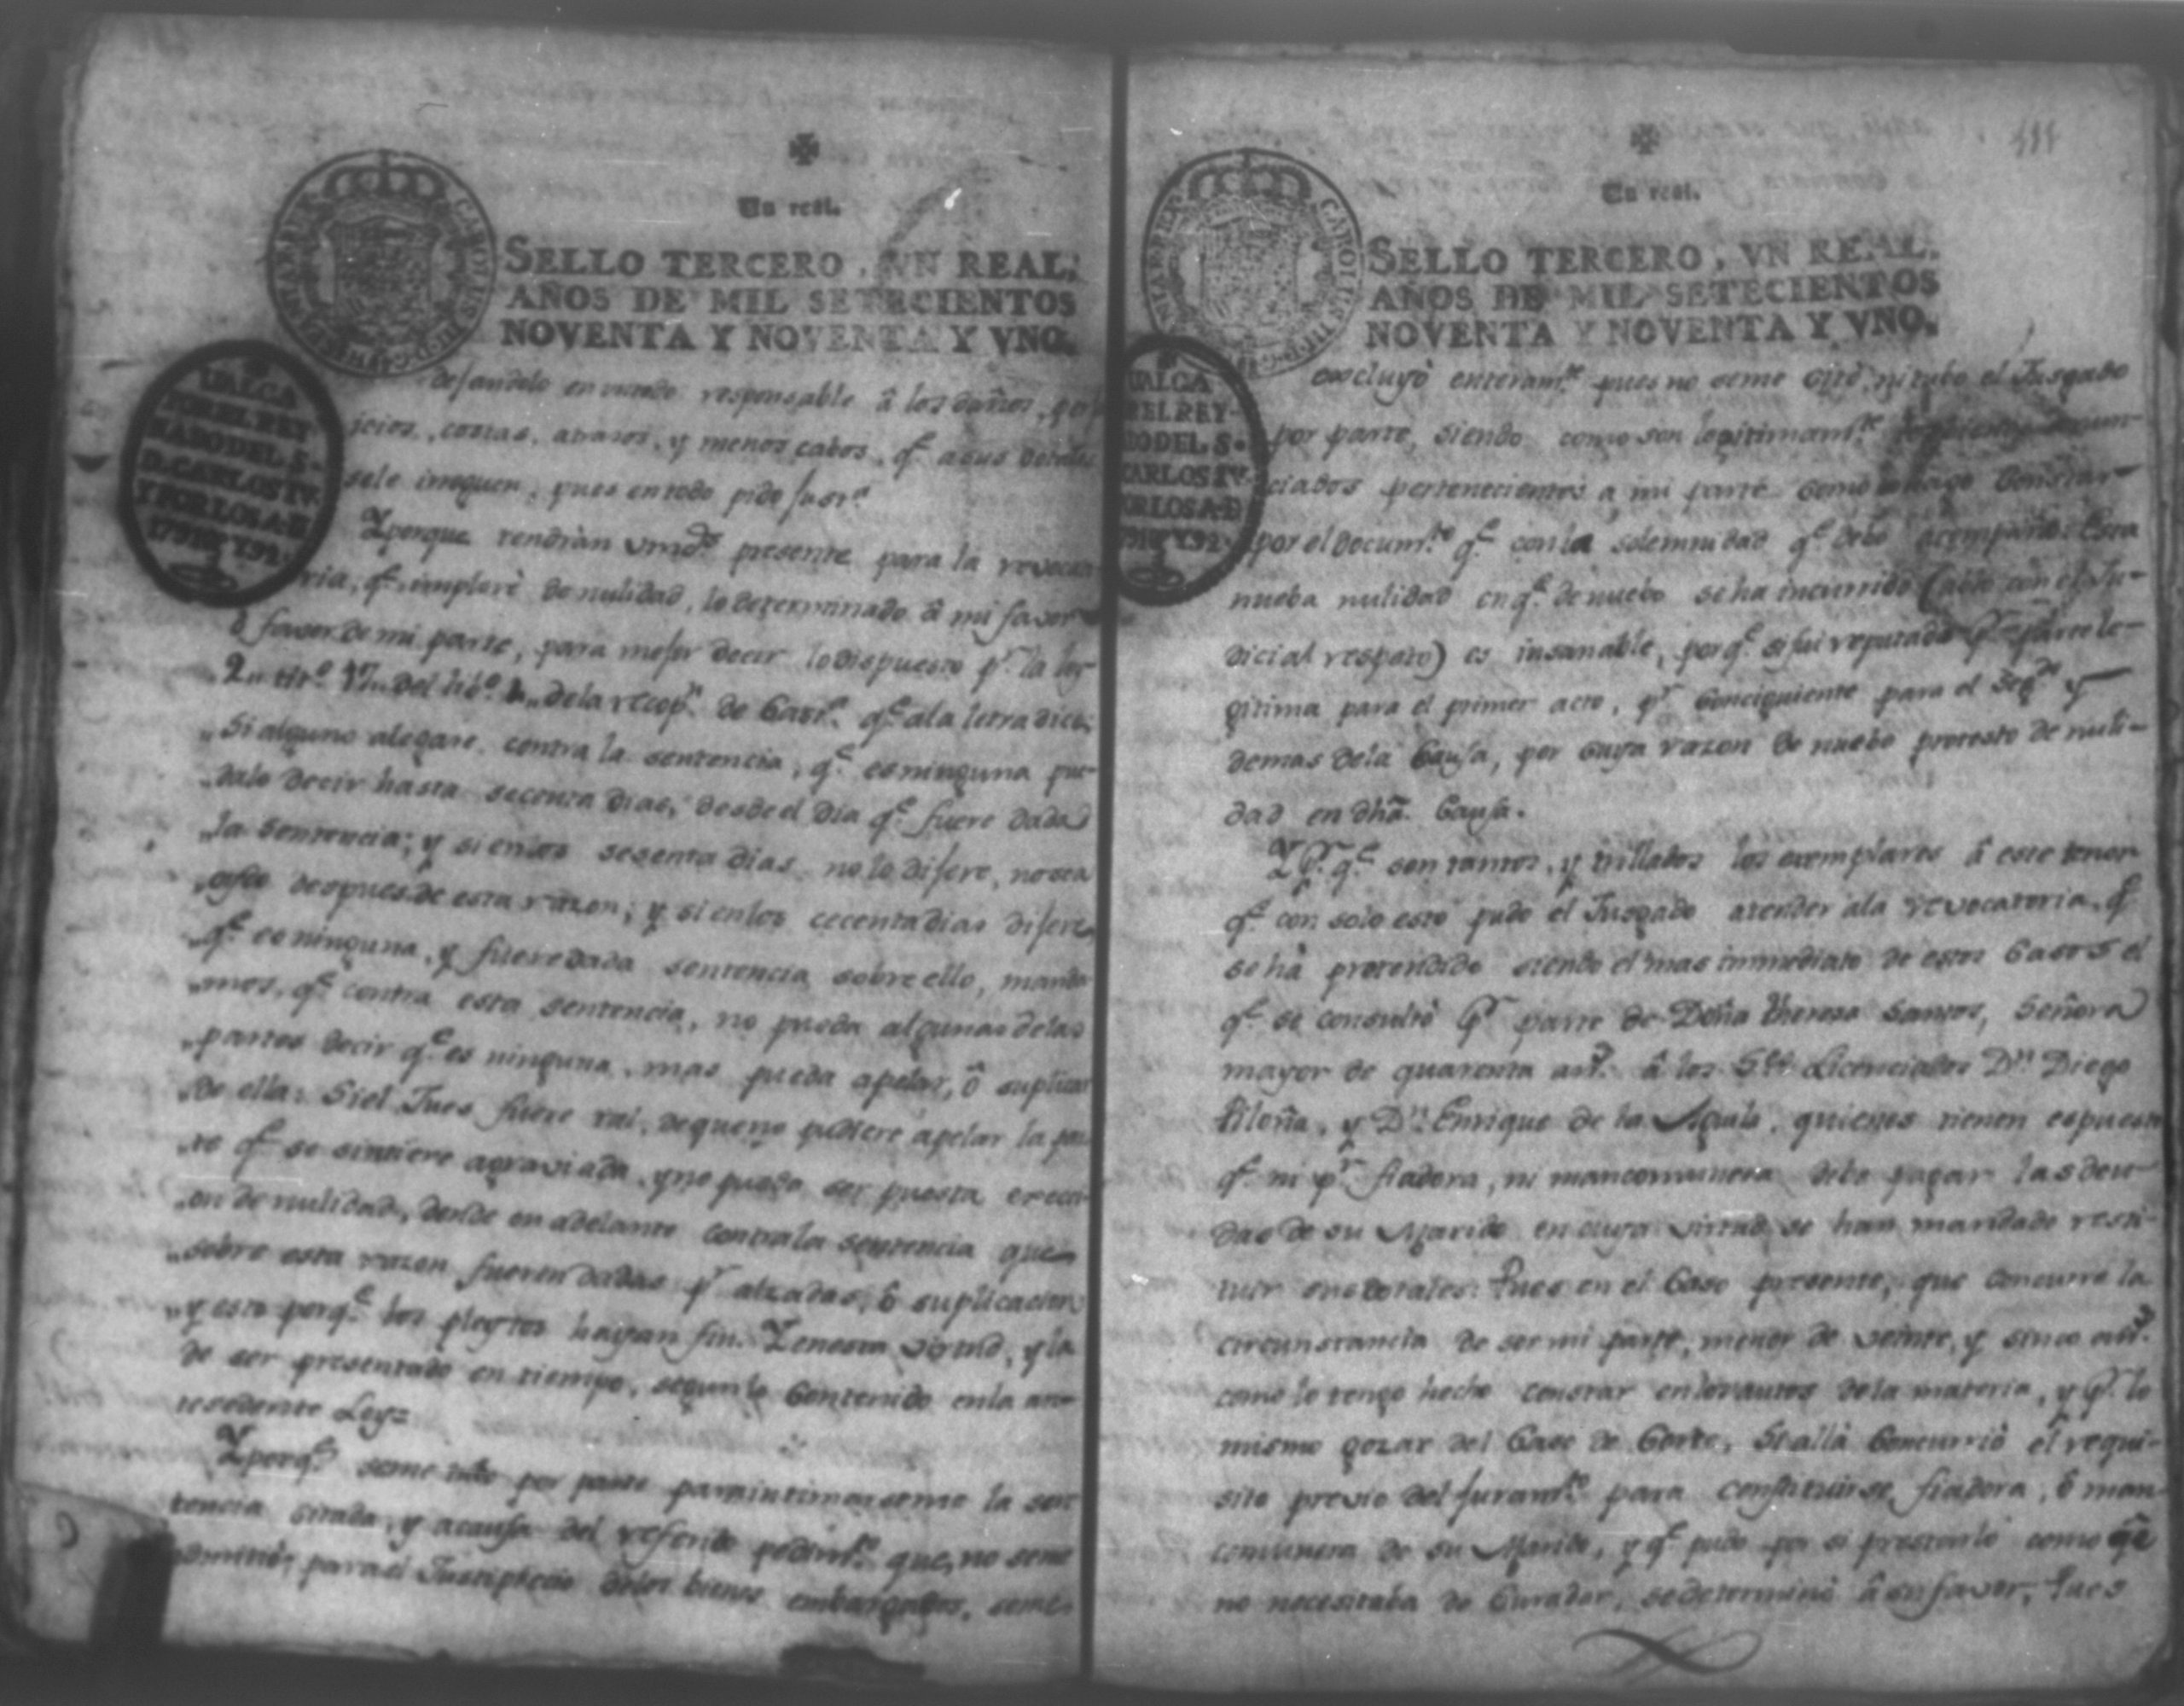 Un real.
SELLO TERCERO, VN REAL,
AÑOS DE MIL SETECIENTOS
NOVENTA Y NOVENTA Y VNO.
VALGA
POR EL REY
NADO DEL S.
D. CARLOS IV.
Y POR LOS A. D
1791 Y 92.
dejandolo en responsable â los daños, per
jcios, costas, atrasos, y menos cabos, qᵉ asus
sele irroguen, pues entodo pido justᵃ
Yporque tendràn vmdˢ presente para la revoca
ria, qᵉ implorè de nulidad, lo determinado â mi favor
ô favor de mi parte, para mejor decir lo dispuesto pʳ la ley
2,, titº 17,, del libº 4,, dela recopⁿ de Castᵃ qᵉ ala letra dice:
„Si alguno alegare contra la sentencia, qᵉ es ninguna pue-
„dalo decir hasta secenta dias, desde el dia qᵉ fuere dada
„la sentencia; y si enlos sesenta dias no lo dijere, no sea
„oydo despues de esta razon; y si enlos cecenta dias dijere
„qᵉ es ninguna, y fuere dada sentencia sobre ello, manda
„mos, qᵉ contra esta sentencia, no pueda algunas delas
„partes decir qᵉ es ninguna, mas pueda apelar, ô suplicar
„de ella: Siel Jues fuere tal, dequeno pudiere apelar la par
„te qᵉ se sintiere agraviada, yno pueda ser puesta excec
„on de nulidad, dende en adelante contrala sentencia que
„sobre esta razon fueren dadas pʳ alzadas, ô suplicacion
„y esto porqᵉ los pleytos hayan fin. Yenesta virtud, y la
de ser presentado en tiempo, segun lo Contenido enla an-
tesedente Ley=
Yporqᵉ seme tubo por parte para intimarseme la sen
tencia sitada, y acausa del referido pedimᵗº que, no seme
admitiò, para el Justiprecio delos bienes embargados, seme
Un real.
SELLO TERCERO, VN REAL,
AÑOS DE MIL SETECIENTOS
NOVENTA Y NOVENTA Y VNO.
VALGA
REL REY
DO DEL S.
CARLOS IV.
OR LOS A. D
791 Y 92.
excluyò enteramᵗᵉ pues no seme citò, ni tubo el Jusgado
por parte, siendo como son legitimamᵗᵉ
ciados pertenecientes a mi parte como lo hago Constar
por el Documᵗº qᵉ con la solemnidad qᵉ debo acompaño: Esta
nueba nulidad en qᵉ de nuebo se ha incurrido (
dicial respeto) es insanable, porqᵉ si fui reputada pʳ parte le-
gitima para el primer acto, pʳ Conciguiente para el segᵈº y
demas dela Causa, por cuya razon de nuebo protesto de nuli-
dad en dhã. Causa.
Ypʳ qᵉ son tantos, y trillados los exemplares â este tenor
qᵉ con solo esto pudo el Jusgado atender ala revocatoria, qᵉ
se hà pretendido siendo el mas inmediato de estos Casos el
qᵉ se consultò pʳ parte de Doña theresa Santos, Señora
mayor de quarenta añˢ â los Sᵉˢ Licenciados Dⁿ Diego
Piloña, y Dⁿ Enrique de la Aguila, quienes tienen espuesto
qᵉ ni pʳ fiadora, ni mancomunera debe pagar las deu
das de su Marido en cuya virtud se han mandado resti-
tuir sus dotales: Pues en el Caso presente, que concurre la
circunstancia de ser mi parte, menor de veinte, y sinco añˢ
como lo tengo hecho constar enlos autos dela materia, y pʳ lo
mismo gozar del Caso de Corte, Si allà Concurriò el requi-
sito previo del juramᵗº para constituirse fiadora, ô man-
comunera de su Marido, y qᵉ pudo por si prestarlo como qᵉ
no necesitaba de Curador, se determinò â su favor, Pues